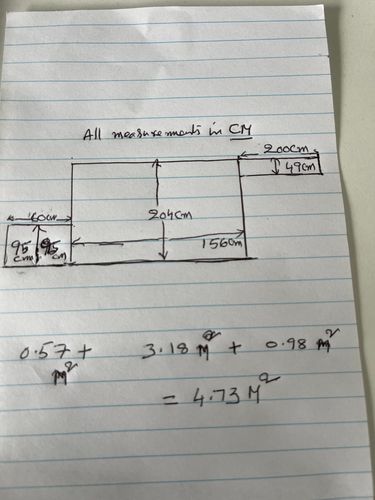 All measurements in CM
200cm
49cm
60cm
204cm
95 cm
95 cm
156cm
0.57 M² + 3.18 M² + 0.98 M²
= 4.73 M²